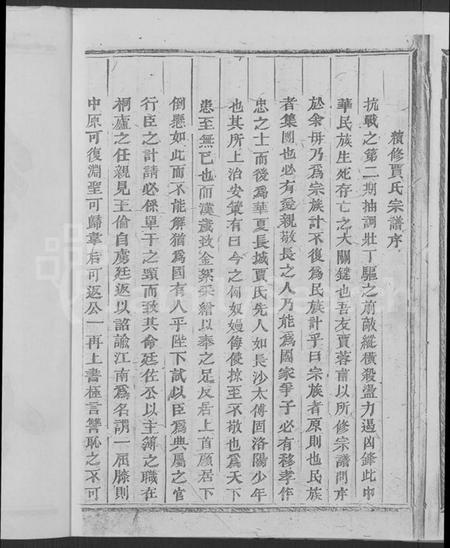 續修賈氏宗譜序
抗戰之第二期抽調壯丁驅之前敵縱橫殺盪力遏凶鋒此中
華民族生死存亡之大關鍵也吾友賈蓉甫以所修宗譜問序
於余毋乃爲宗族計不復爲民族計乎曰宗族者原則也民族
者集團也必有愛親敬長之人乃能爲國家爭子必有移孝作
忠之士而後爲華夏長城賈氏先人如長沙太傅固洛陽少年
也其所上治安策有曰今之匈奴嫚侮侵掠至不敬也爲天下
患至無已也而漢歲致金絮采繒以奉之足反居上首顧居下
倒懸如此而不能解猶爲國有人乎陛下試以臣爲典屬之官
行臣之計請必係單于之頸而致其命廷佐丞以主簿之職在
桐廬之任親見王倫自虜廷返以詔諭江南爲名謂一屈膝則
中原可復淵聖可歸韋后可返公一再上書極言讐恥之不可